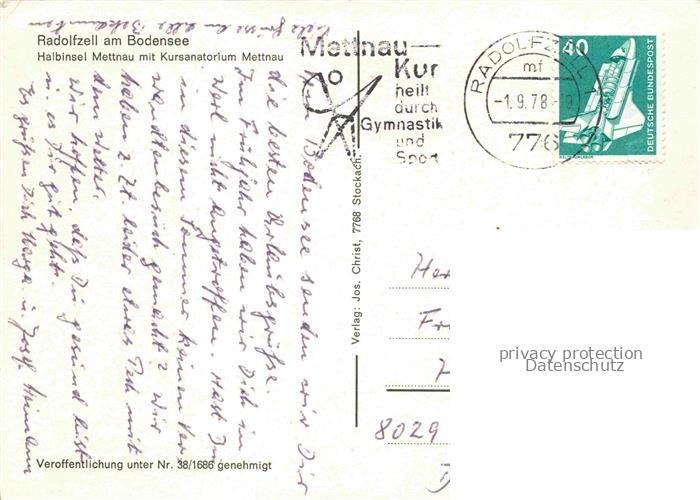 Radolfzell am Bodensee
Halbinsel Mettnau mit Kursanatorium Mettnau
Viele Grüße an alle Bekannten
Vom Bodensee senden wir Dir
die besten Urlaubsgrüße.
Im Frühjahr haben wir Dich in
nicht angetroffen. Hast Du
in diesem Sommer keinen Ver-
wandtenbesuch gemacht? Wir
haben z. Zt. leider etwas Pech mit
dem Wetter.
Wir hoffen, daß Du gesund bist
u. es Dir gut geht.
Es grüßen Dich u. Josef
Veröffentlichung unter Nr. 38/1686 genehmigt
Verlag: Jos. Christ, 7768 Stockach
Mettnau
Kur
heilt
durch
Gymnastik
und
Sport
RADOLFZELL 1
mf
-1.9.78
776
40
DEUTSCHE BUNDESPOST
WELTRAUMLABOR
8029
privacy protection
Datenschutz